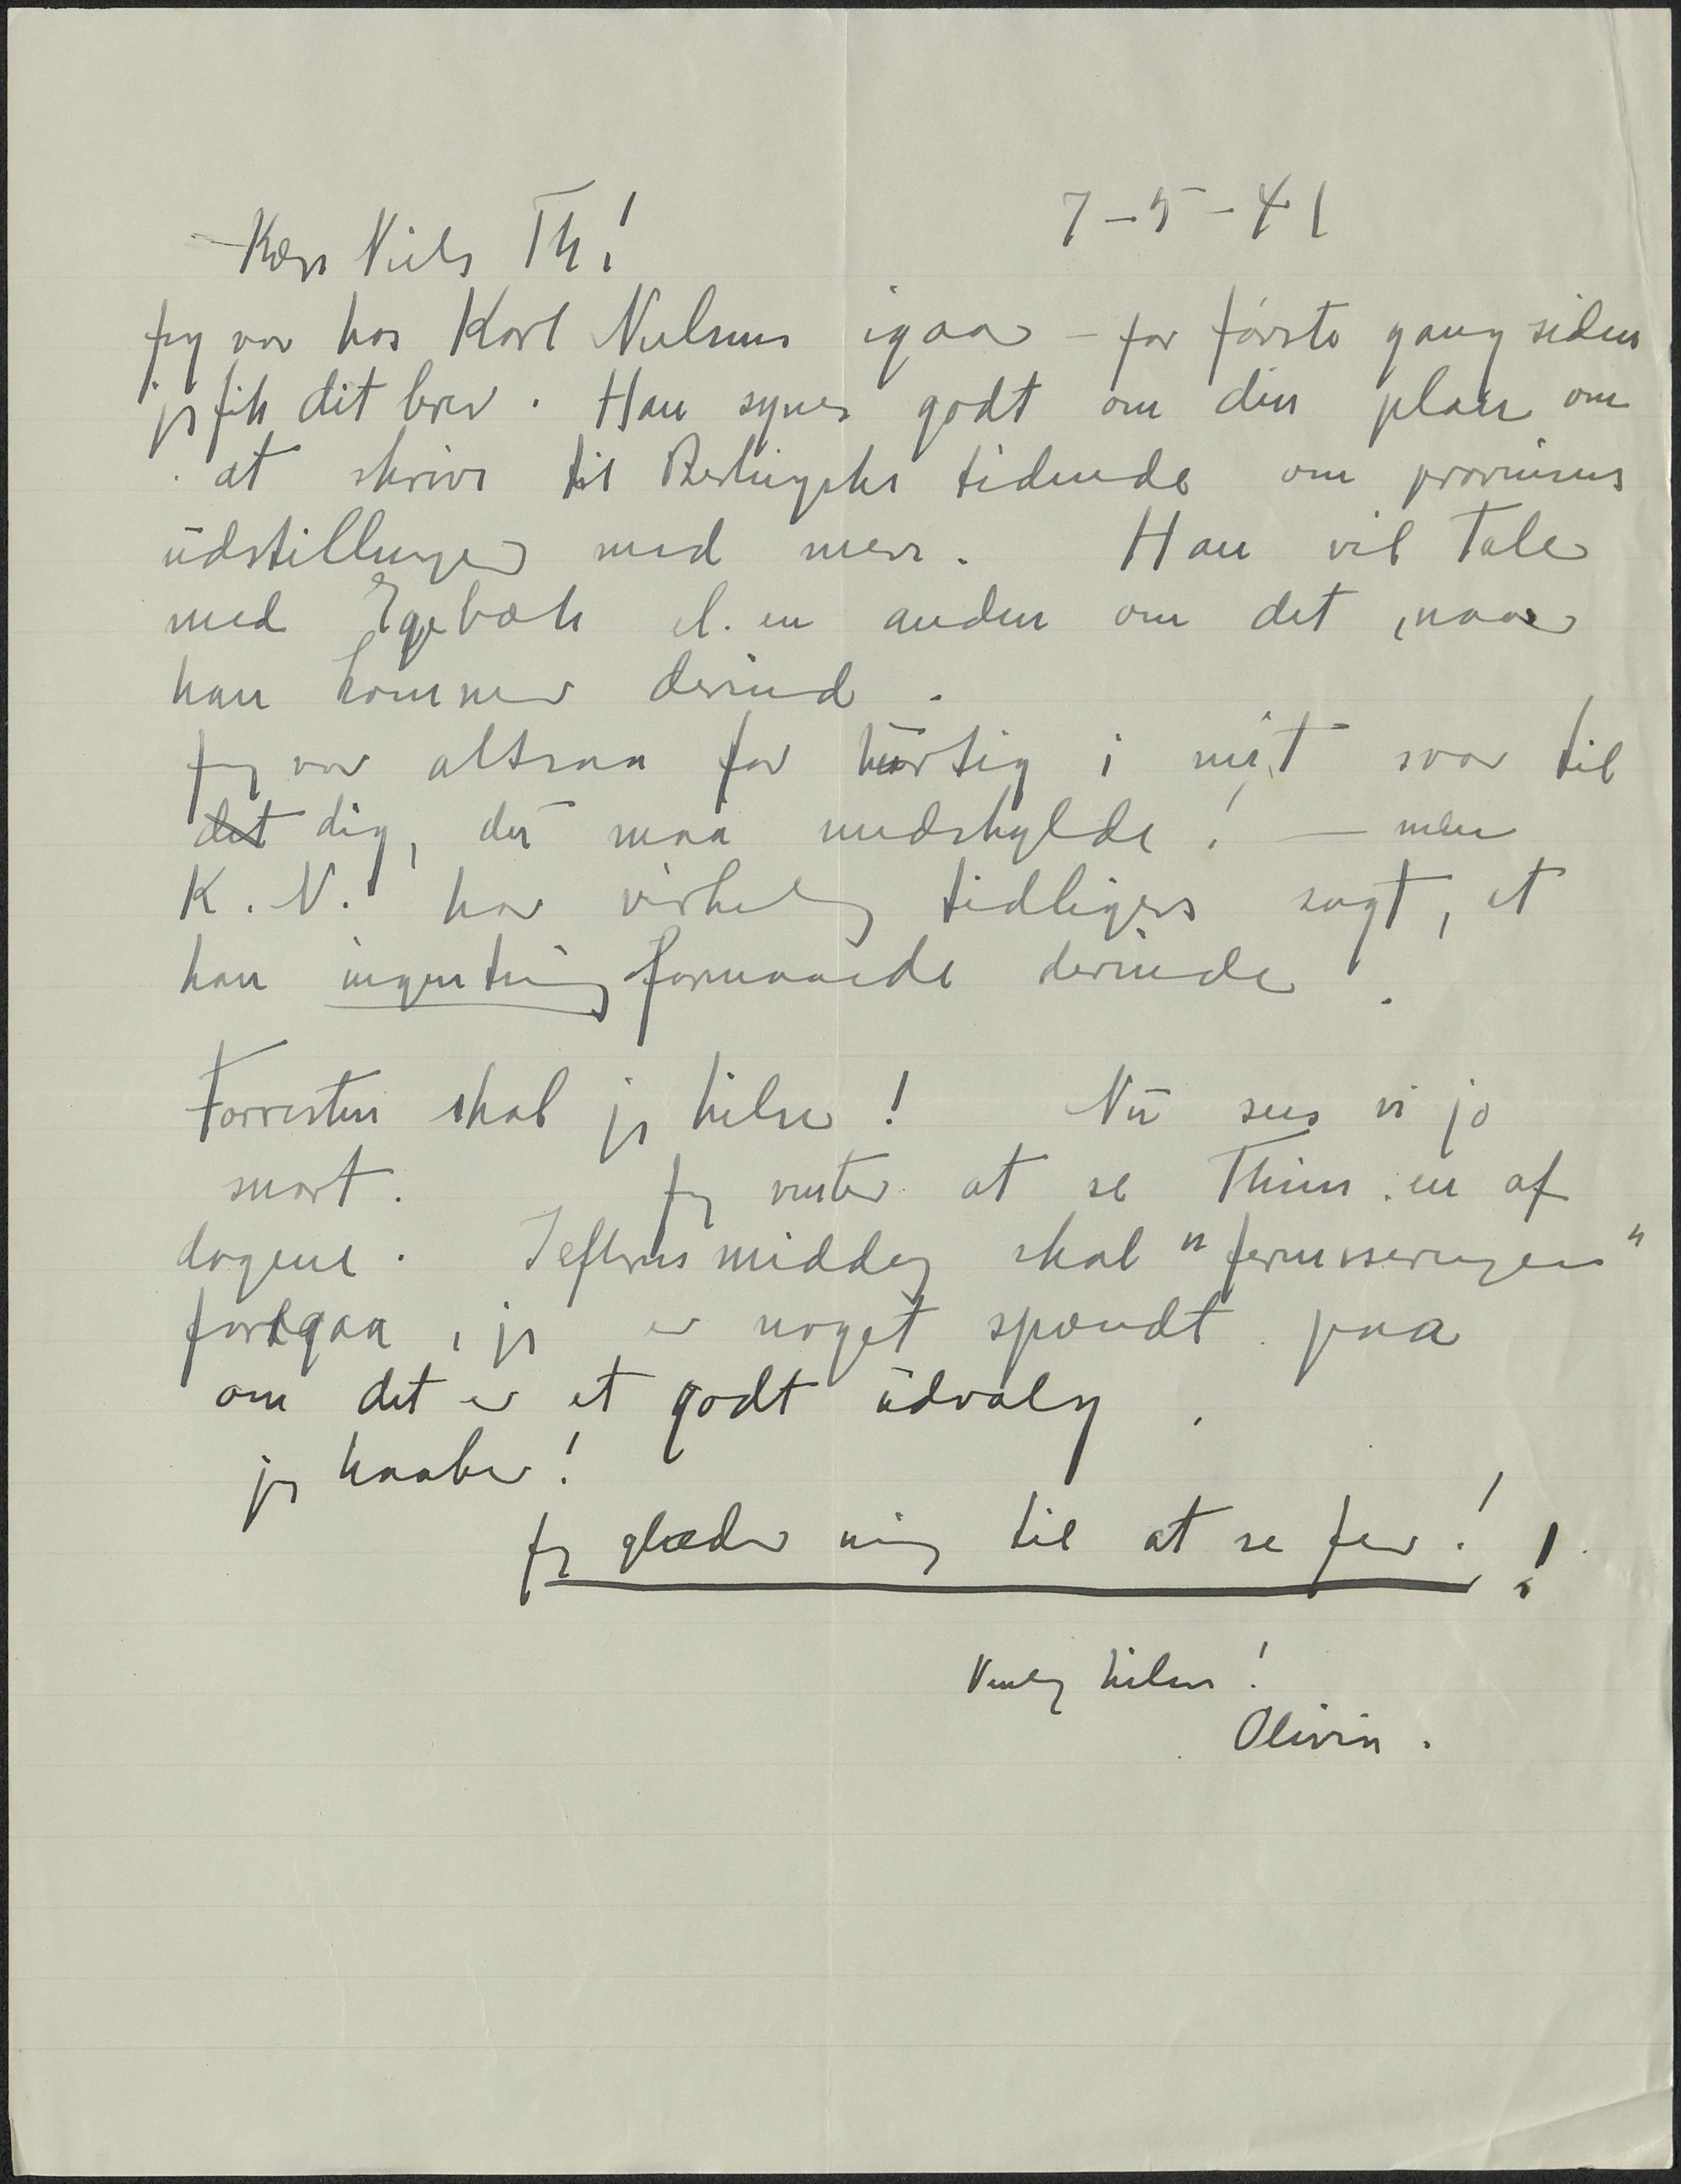 7-5-41
Kære Niels Th!
Jeg var hos Karl Nielsens igaar – for første gang siden
jeg fik dit brev. Han synes godt om din plan om
at skrive til Berlingske tidende om provinsens
udstillinger med mere. Han vil Tale
med Egebæk el. en anden om det, naar
han kommer derind.
Jeg var altsaa for hurtig i mit svar til
det dig, du maa undskylde! – men
K. N. har virkelig tidligere sagt, at
han ingenting formaaede derinde.
Forresten skal jeg hilse! Nu ses vi jo
snart. Jeg venter at se Thim en af
dagene. I eftermiddag skal "ferniseringen"
foregaa, jeg er noget spændt paa
om det er et godt udvalg.
jeg haaber!
Jeg glæder mig til at se jer!!
Venlig hilsen!
Olivia.